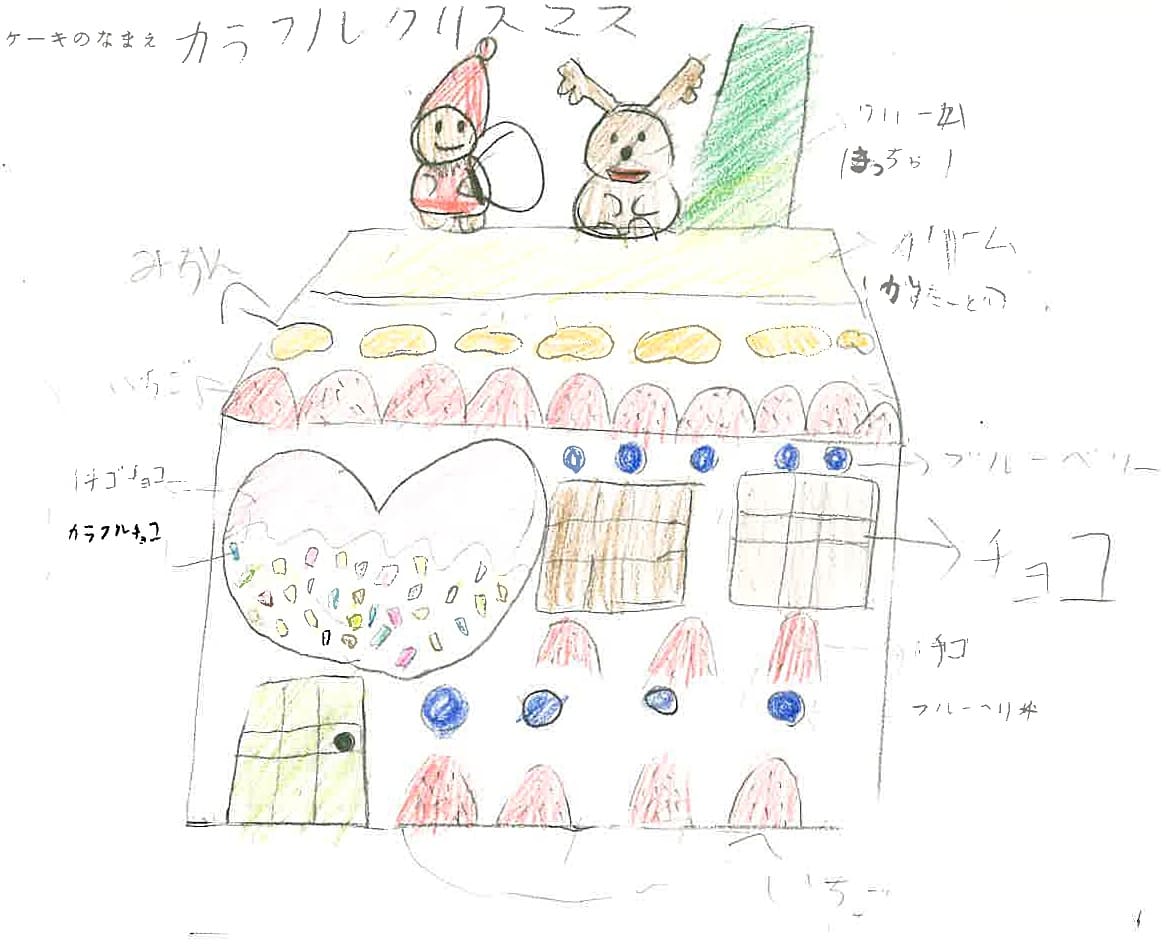 ケーキのなまえ カラフルクリスマス
クリーム
(まっちゃ)
クリーム
(かすたーど)
みかん
いちご
イチゴチョコ
カラフルチョコ
ブルーベリー
チョコ
イチゴ
ブルーベリー
いちご